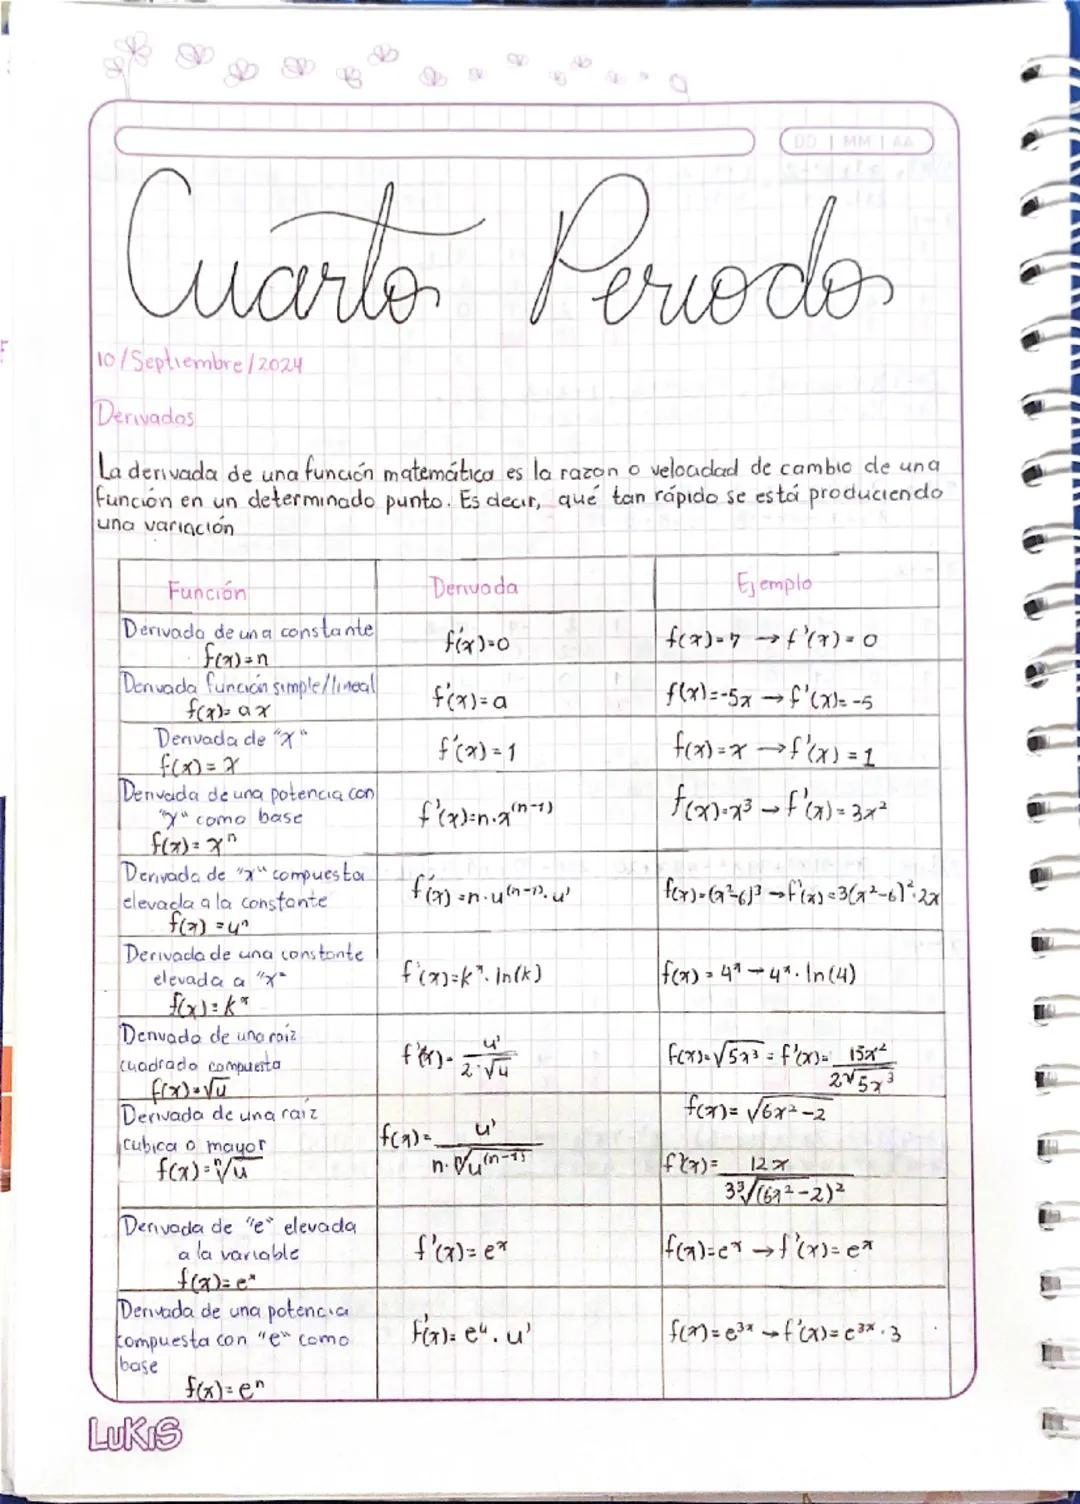 DD | MM | AA
Cuarto Periodo
10/Septiembre/2024
Derivadas
La derivada de una función matemática es la razon o velocidad de cambio de una
función en un determinado punto. Es decir, qué tan rápido se está produciendo
una variación
Función Derivada Ejemplo
Derivada de una constante
f(x)=n f'(x)=0 f(x)=7 → f'(x)=0
Derivada función simple/lineal
f(x)=ax f'(x)=a f(x)=-5x → f'(x)=-5
Derivada de "x"
f(x)=x f'(x)=1 f(x)=x → f'(x)=1
Derivada de una potencia con
"x" como base f'(x)=n·x⁽ⁿ⁻¹⁾ f(x)=x³ → f'(x)=3x²
f(x)=xⁿ
Derivada de "x" compuesta
elevada a la constante f'(x)=n·u⁽ⁿ⁻¹⁾·u' f(x)=(x²-6)³ → f'(x)=3(x²-6)²·2x
f(x)=uⁿ
Derivada de una constante
elevada a "x" f'(x)=kˣ·ln(k) f(x)=4ˣ → 4ˣ·ln(4)
f(x)=kˣ
Derivada de una raíz
cuadrada compuesta f'(x)=u'/2·√u f(x)=√5x³ = f'(x)=15x²/2√5x³
f(x)=√u
Derivada de una raíz f(x)=√6x²-2
cubica o mayor f(x)=u'/n·ⁿ√u⁽ⁿ⁻¹⁾
f(x)=ⁿ√u f'(x)=12x/3³√(6x²-2)²
Derivada de "e" elevada
a la variable f'(x)=eˣ f(x)=eˣ → f'(x)=eˣ
f(x)=eˣ
Derivada de una potencia
compuesta con "e" como f'(x)=eᵘ·u' f(x)=e³ˣ → f'(x)=e³ˣ·3
base
f(x)=eⁿ
LUKIS